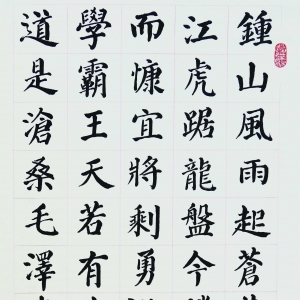 鍾山風雨起蒼
江虎踞龍盤今
而慷宜將剩勇
學霸王天若有
道是滄桑毛澤